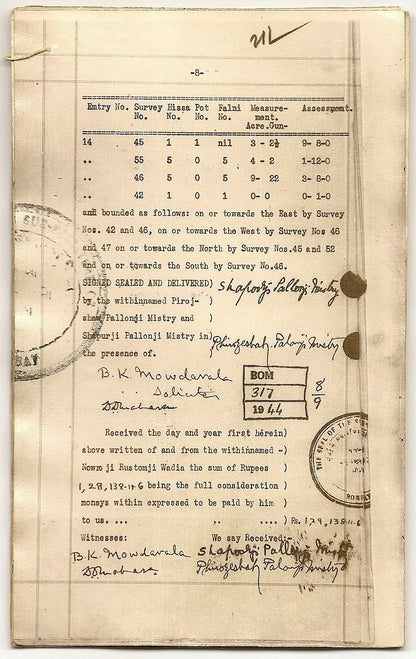 -8-
Entry No. Survey Hissa Pot Falni Measure- Assessment.
No. No. No. No. ment.
Acre.Gun-
14 45 1 1 nil 3 - 2½ 9- 8-0
.. 55 5 0 5 4 - 2 1-12-0
.. 46 5 0 5 9- 22 3- 8-0
.. 42 1 0 1 0- 0 0- 1-0
and bounded as follows: on or towards the East by Survey
Nos. 42 and 46, on or towards the West by Survey Nos 46
and 47 on or towards the North by Survey Nos.45 and 52
and on or towards the South by Survey No.46.
SIGNED SEALED AND DELIVERED) Shapoorji Pallonji Mistry
by the withinnamed Piroj- )
shaw Pallonji Mistry and )
Shapurji Pallonji Mistry in) Phirozeshah Palonji Mistry
the presence of. )
B. K. Mowdavala
Solicitor
BOM
317
1944
8/9
Received the day and year first herein)
above written of and from the withinnamed -)
Nowroji Rustomji Wadia the sum of Rupees )
being the full consideration )
moneys within expressed to be paid by him )
to us. ... .. .... ) Rs.
THE SEAL OF THE
BOMBAY
Witnesses: We say Received:-
B. K. Mowdavala Shapoorji Pallonji Mistry
Phirozeshah Palonji Mistry